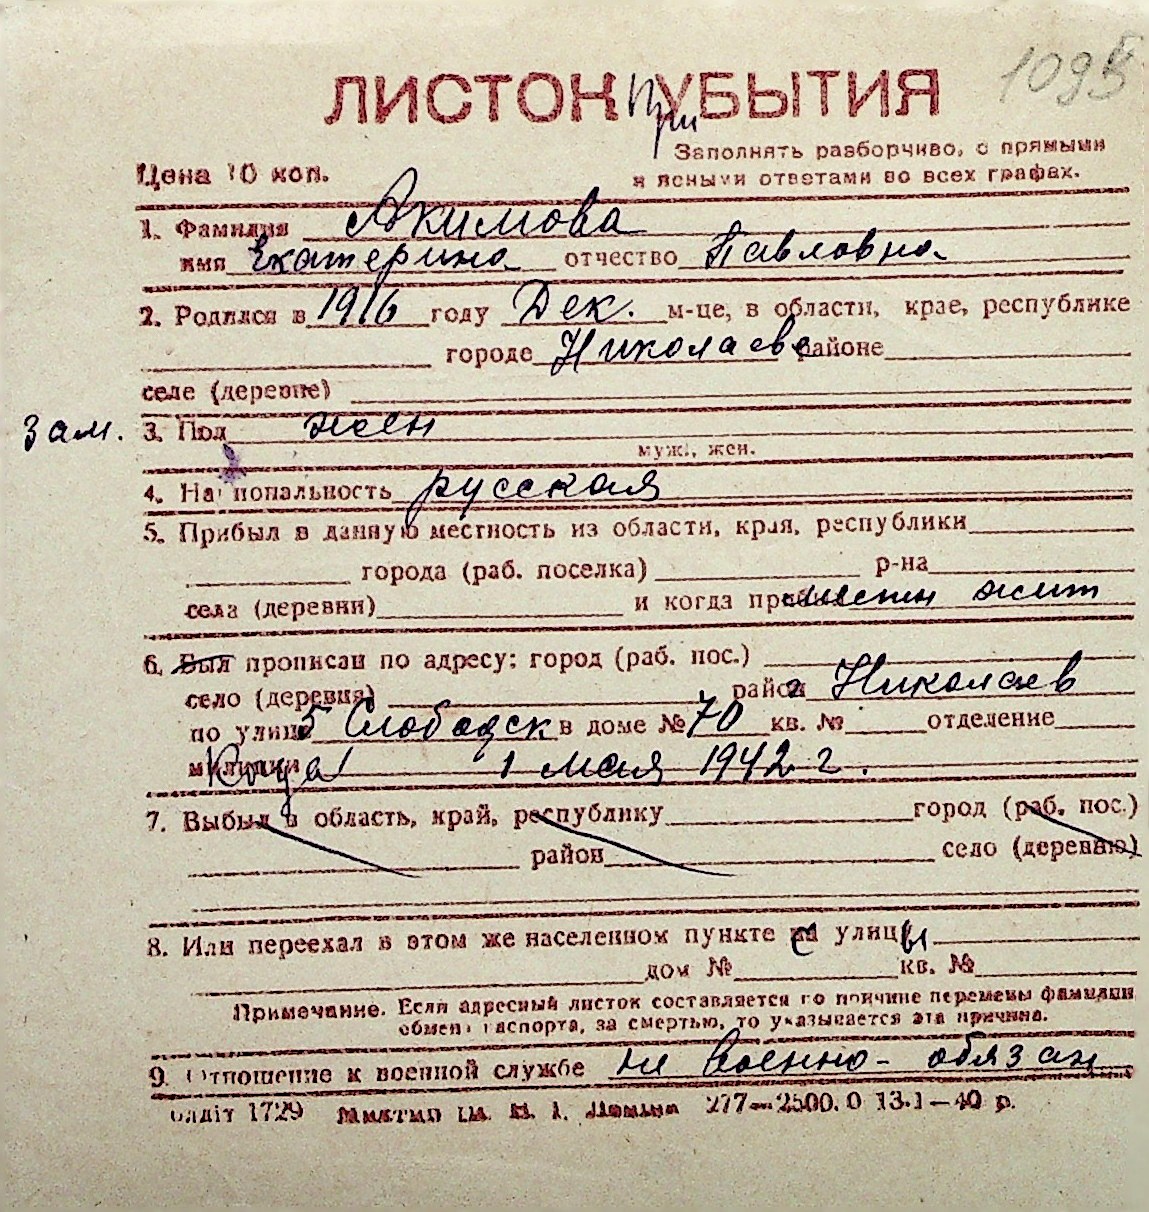 1095
ЛИСТОК При УБЫТИЯ
Заполнять разборчиво, с прямыми
Цена 10 коп. и ясными ответами во всех графах.
1. Фамилия Акимова
имя Екатерина отчество Павловна
2. Родился в 1916 году Дек. м-це, в области, крае, республике
городе Николаеве районе
селе (деревне)
зам. 3. Пол жен
муж., жен.
4. Национальность русская
5. Прибыл в данную местность из области, края, республики
города (раб. поселка) р-на
села (деревни) и когда прибыл местн жит
6. Был прописан по адресу: город (раб. пос.)
село (деревня) район Николаев
по улице 5 Слободск в доме № 70 кв. № отделение
милиции Когда 1 мая 1942 г.
7. Выбыл в область, край, республику город (раб. пос.)
район село (деревню)
8. Или переехал в этом же населенном пункте с улицы
дом № кв. №
Примечание. Если адресный листок составляется по причине перемены фамилии
обмена паспорта, за смертью, то указывается эта причина.
9. Отношение к военной службе не военно-обязан
1729 277—2500.0 13.1—40 р.